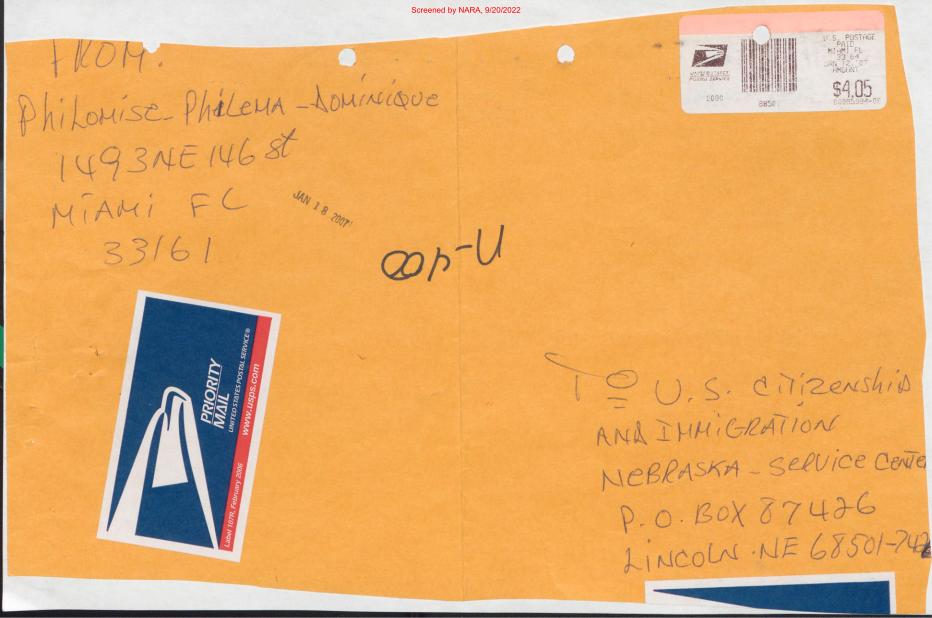 Screened by NARA, 9/20/2022
FROM.
PHiLOMiSE-PHiLEMA-DOMiNiQUE
1493NE 146 st
MiAMi FL
33161
JAN 18 2007
U.S. POSTAGE
PAID
MIAMI FL
33164
JAN 12 '07
AMOUNT
$4.05
UNITED STATES
POSTAL SERVICE
0000
PRIORITY
MAIL
UNITED STATES POSTAL SERVICE®
www.usps.com
Label 107R, February 2006
TO U.S. CiTiZENSHiP
AND IMMiGRATiON
NEBRASKA - SERViCE CENTE
P.O. BOX 87426
LiNCOLN . NE 68501-742